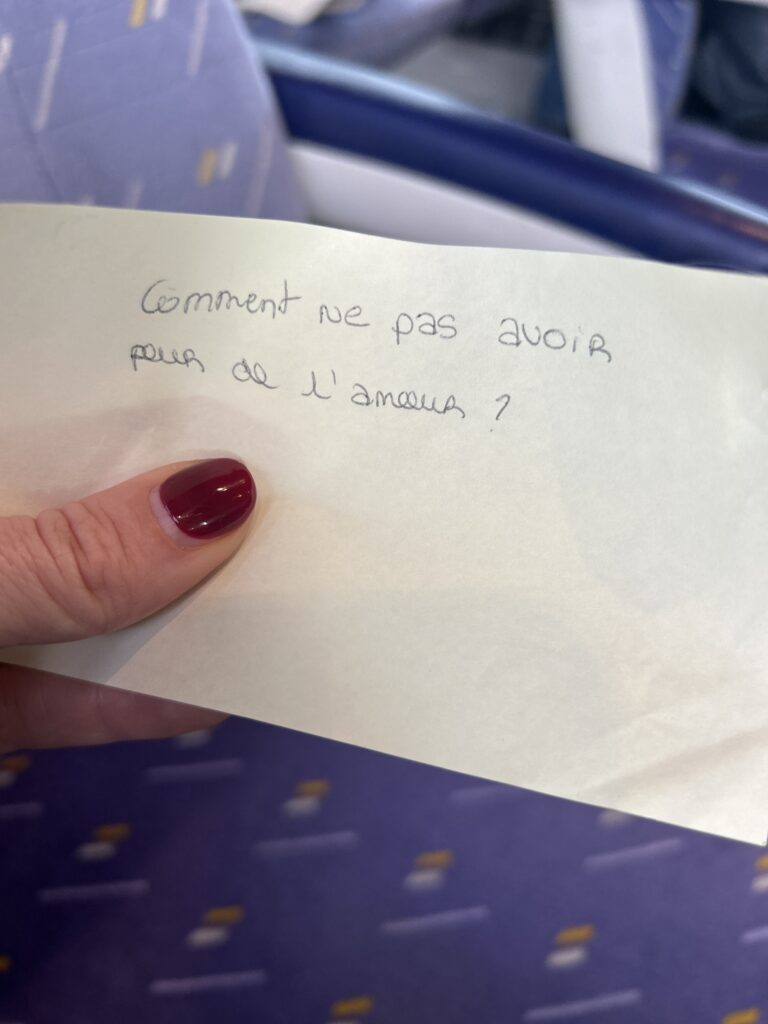 Comment ne pas avoir
peur de l'amour ?